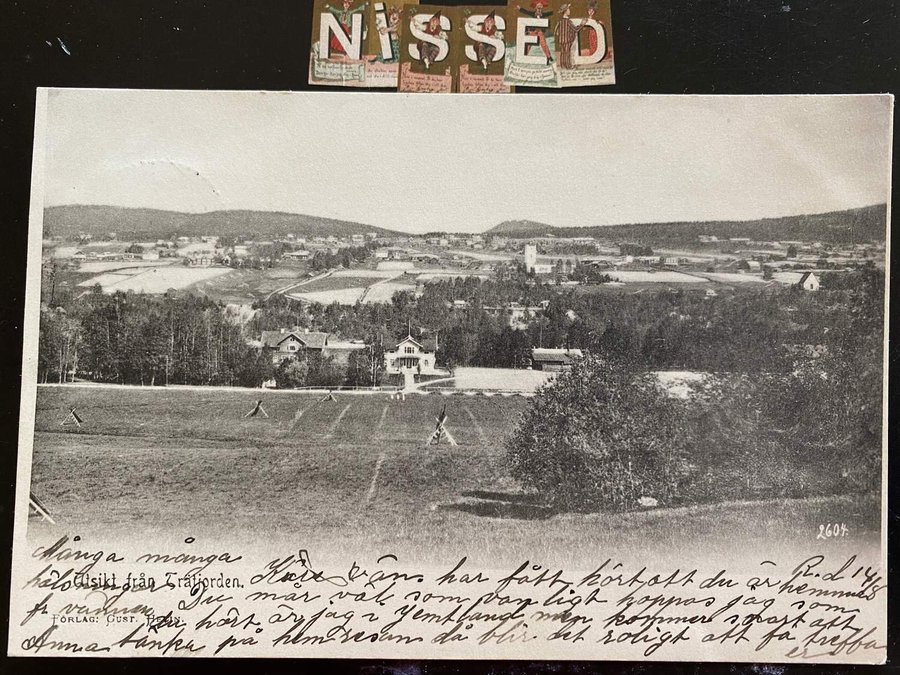 NISSED
2604.
Utsikt från Träfjorden.
FÖRLAG: GUST.
Många många
hälsningar
fr vännen
Anna
R.d 14/8
Käre har fått hört att du är hemma
Du mår väl som vanligt hoppas jag som
hört är jag i Jemtland, men kommer snart att
tänka på hemresan då blir det roligt att få träffa
er